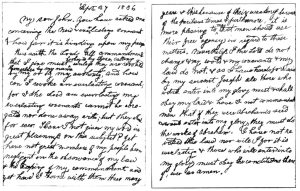 Sept 27 1886
My son John, You have asked me
concerning the New & Everlasting Covenant
how far it is binding upon my people
Thus saith the Lord: All commandments
that I give must be obeyed by those calling
themselves by my name unless they are revoked
by me or by my authority, and how
can I revoke an everlasting covenant
for I the Lord am everlasting and my
everlasting covenants cannot be abro-
gated nor done away with, but they stand
for ever. Have I not given my word in
great plainness on this subject? Yet
have not great numbers of my people been
negligent in the observance of my law
& the keeping of my commandments and
yet have I borne with them these many
years & this because of their weakness because
of the perilous times & furthermore, it is
more pleasing to me that men should use
their free agency in regard to these
matters. Nevertheless I the Lord do not
change & my word & my covenants & my
law do not & as I have heretofore said
by my servant Joseph all those who
would enter into my glory must & shall
obey my law & have I not commanded
men that if they were Abraham's seed and
would enter into my glory, they must do
the works of Abraham. I have not re-
voked this law nor will I for it is
everlasting & those who will enter into
my glory must obey the conditions thereof
even so Amen.